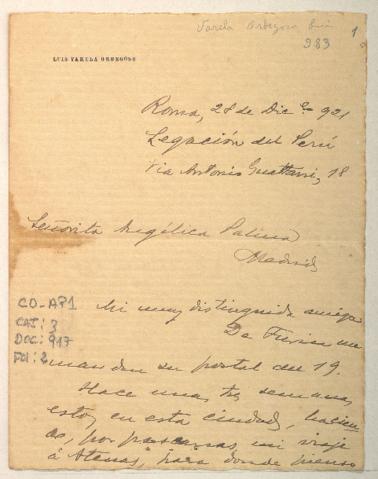 Varela Orbegoso Luis
983
1
LUIS VARELA ORBEGOSO
Roma, 28 de Dic.e 921
Legación del Perú
Via Antonio Guattani, 18
Señorita Angélica Palma
Madrid
CO-AP1
CAJ: 3
DOC: 917
FOJ: 2
Mi muy distinguida amiga
De Turin me
mandan su postal del 19.
Hace unas tres semanas
estoy en esta ciudad,
as, por pascanas, mi viaje
á Atenas, para donde pienso